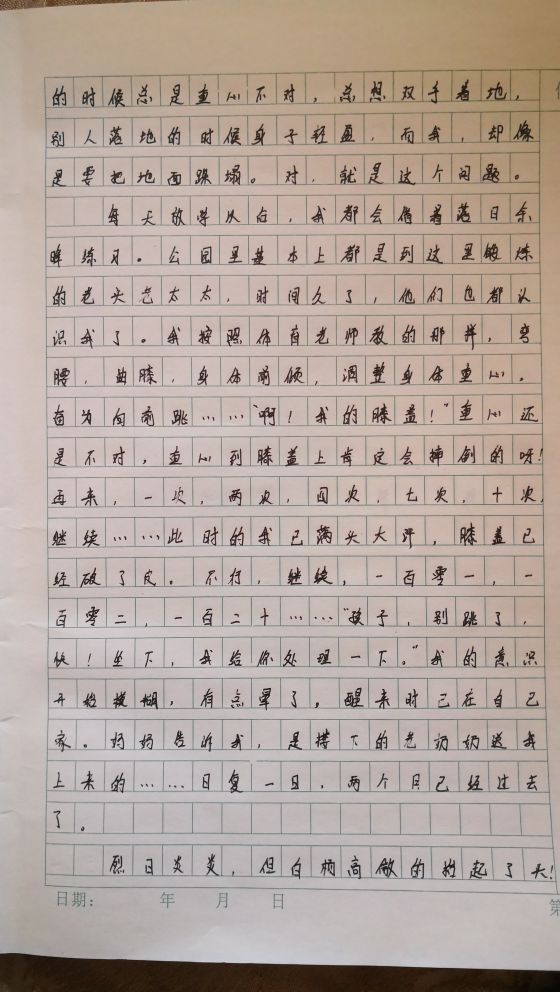 的时候总是重心不对，总想双手着地，
别人落地的时候身子轻盈，而我，却像
是要把地面跺塌。对，就是这个问题。
每天放学以后，我都会借着落日余
晖练习。公园里基本上都是到这里锻炼
的老头老太太，时间久了，他们也都认
识我了。我按照体育老师教的那样，弯
腰，曲膝，身体前倾，调整身体重心，
奋力向前跳……“啊！我的膝盖！”重心还
是不对，重心到膝盖上肯定会摔倒的呀！
再来，一次，两次，四次，七次，十次，
继续……此时的我已满头大汗，膝盖已
经破了皮。不行，继续，一百零一，一
百零二，一百二十……“孩子，别跳了，
快！坐下，我给你处理一下。”我的意识
开始模糊，有点晕了。醒来时已在自己
家。妈妈告诉我，是楼下的老奶奶送我
上来的……日复一日，两个月已经过去
了。
烈日炎炎，但白杨高傲的抬起了头！
日期： 年 月 日
第